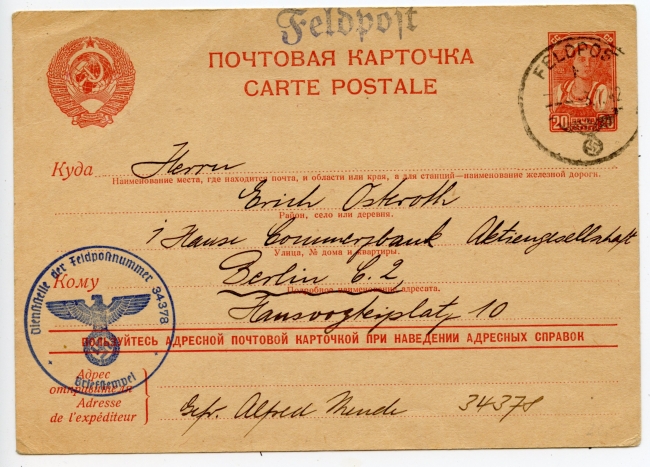 Feldpost
ПОЧТОВАЯ КАРТОЧКА
CARTE POSTALE
FELDPOST
20
Куда
Herrn
Наименование места, где находится почта, и области или края, а для станций—наименование железной дороги.
Erich Osteroth
Район, село или деревня.
i/Hause Commerzbank Aktiengesellschaft
Улица, № дома и квартиры.
Кому
Berlin C.2
Подробное наименование адресата.
Hausvogteiplatz 10
Dienststelle der Feldpostnummer 34378
Briefstempel
ПОЛЬЗУЙТЕСЬ АДРЕСНОЙ ПОЧТОВОЙ КАРТОЧКОЙ ПРИ НАВЕДЕНИИ АДРЕСНЫХ СПРАВОК
Адрес
отправителя
Adresse
de l'expéditeur
Gefr. Alfred Mende 34378